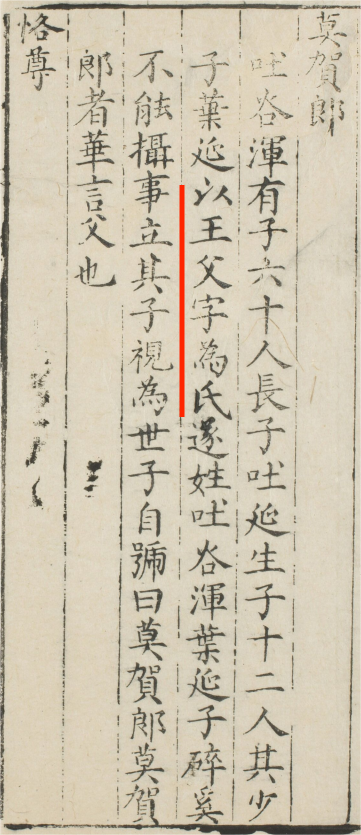 莫賀郎
吐谷渾有子六十人長子吐延生子十二人其少
子葉延以王父字為氏遂姓吐谷渾葉延子碎奚
不能攝事立其子視為世子自號曰莫賀郎莫賀
郎者華言父也
恪尊